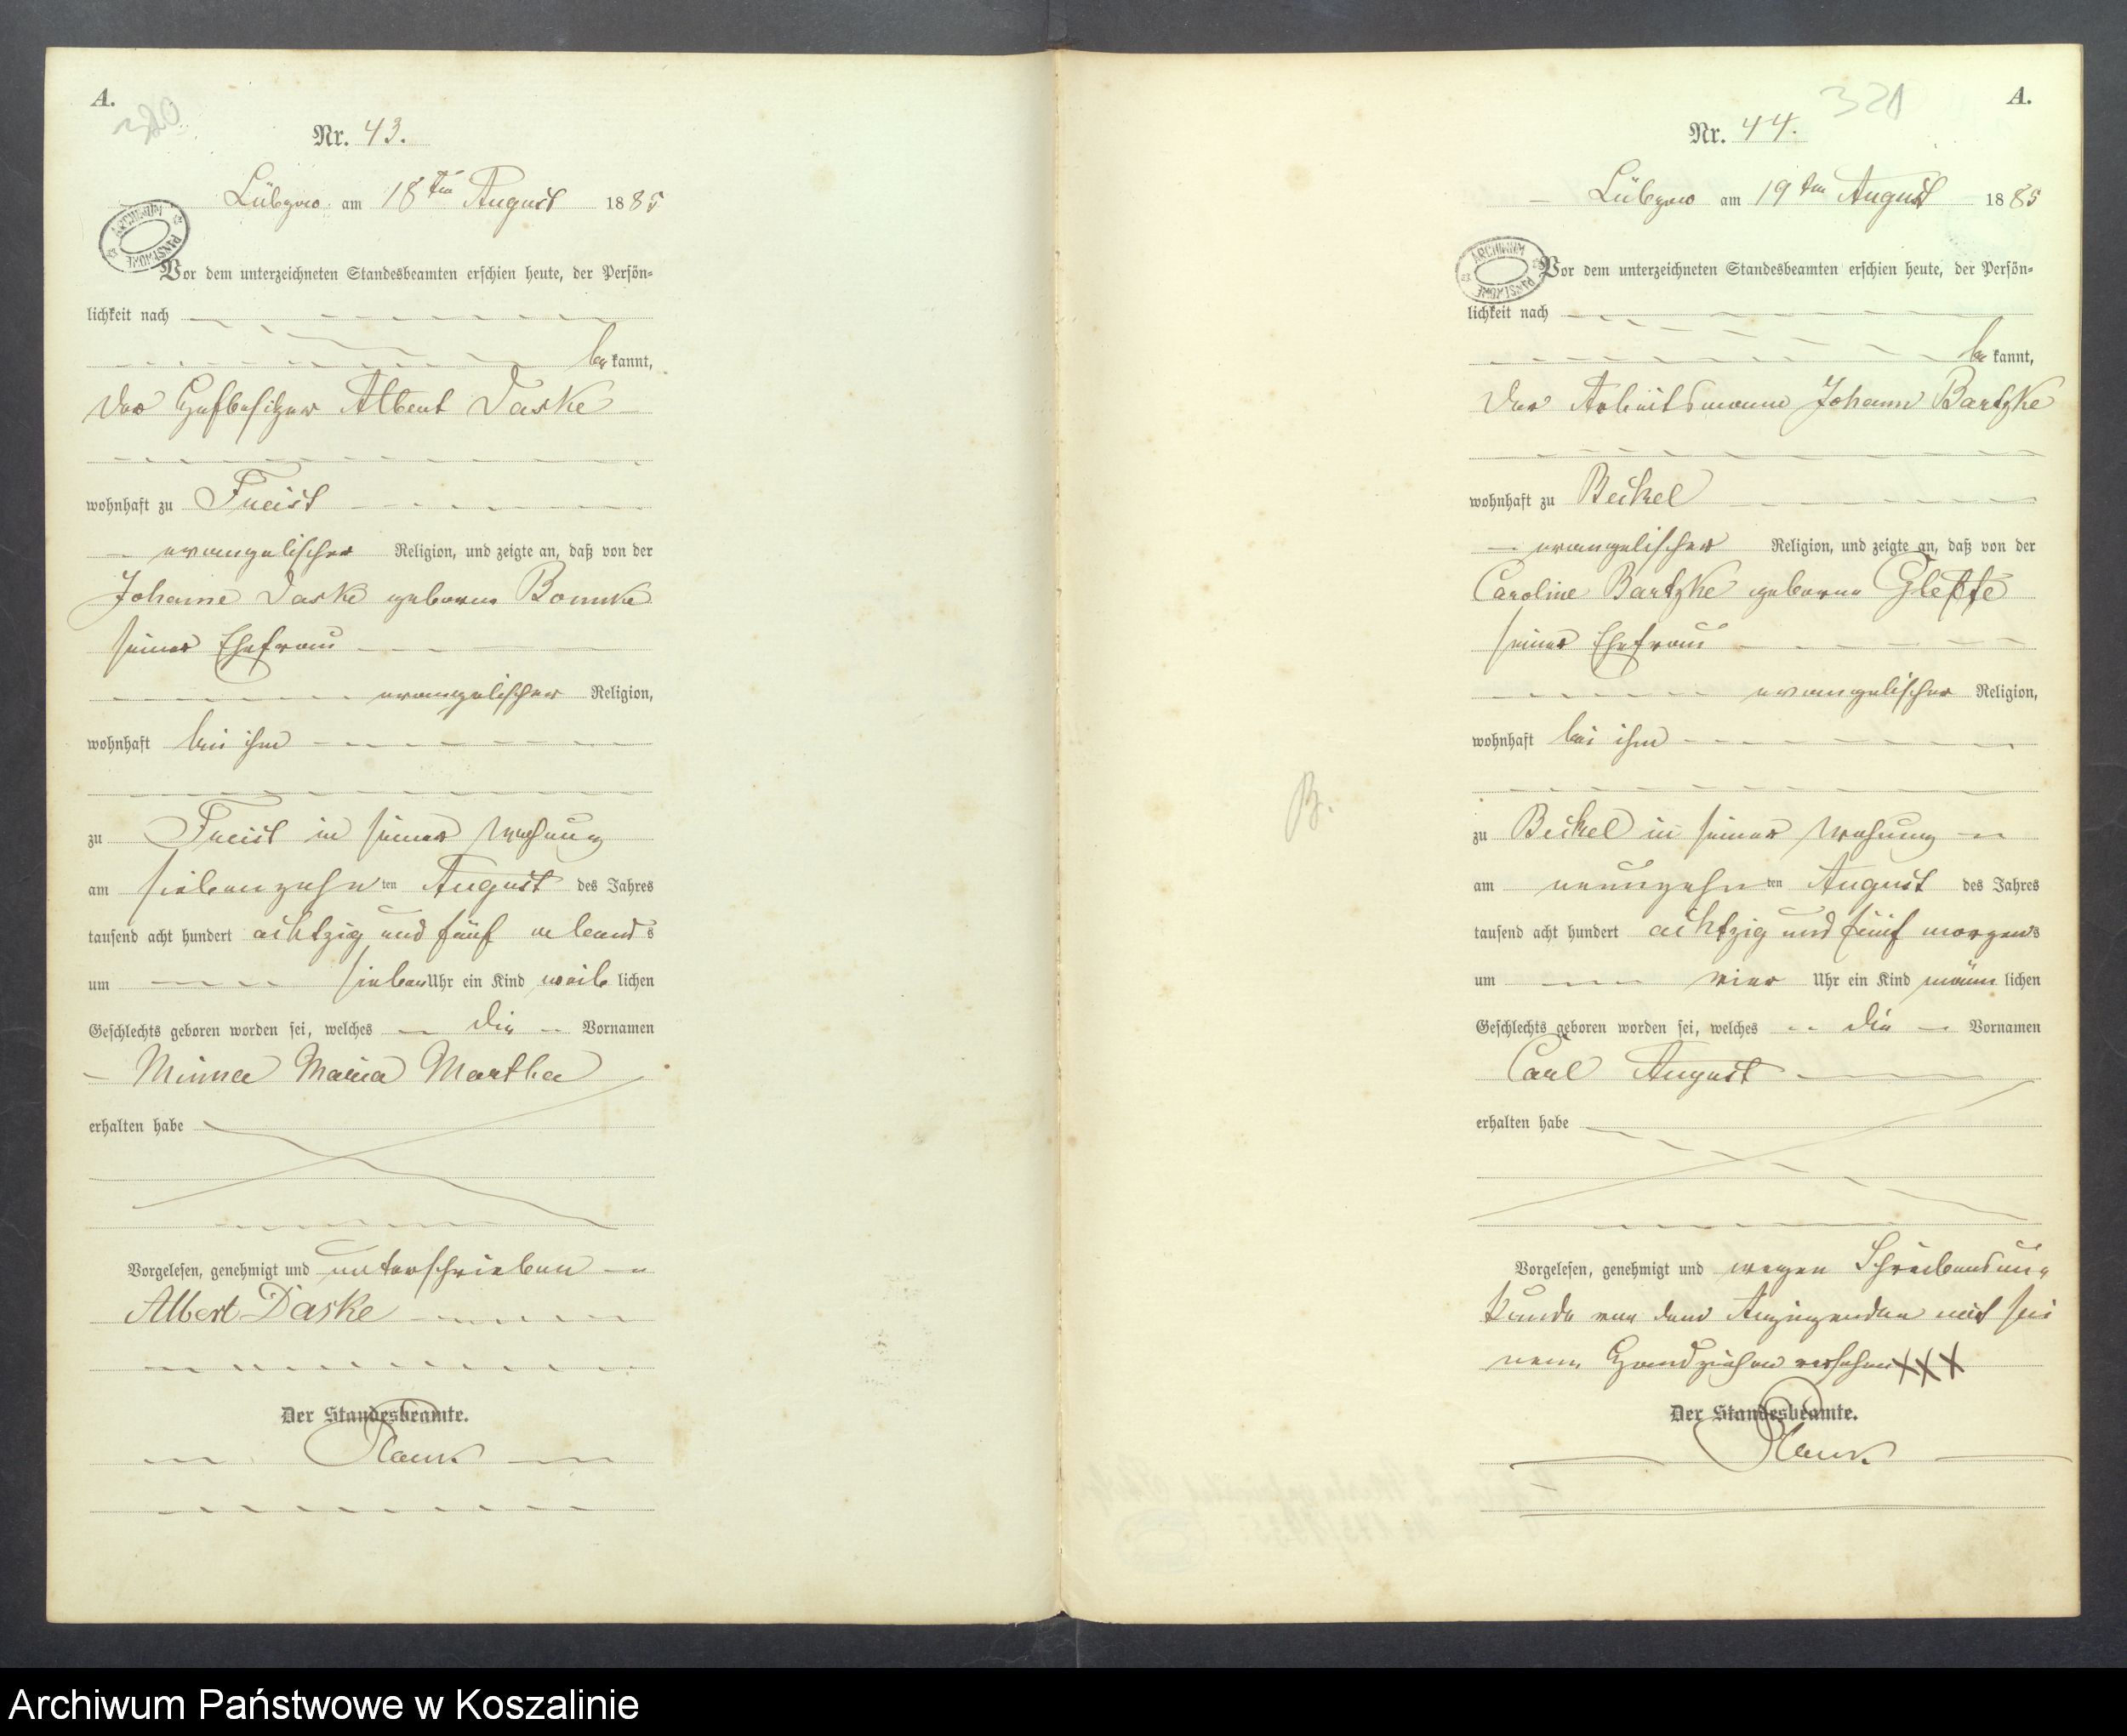 A.
320
Nr. 43.
Lübzow am 18ten August 1885
ARCHIWUM PAŃSTWOWE
Vor dem unterzeichneten Standesbeamten erschien heute, der Persön=
lichkeit nach
be kannt,
der Hofbesitzer Albert Daske
wohnhaft zu Freist
evangelischer Religion, und zeigte an, daß von der
Johanne Daske geborne
seiner Ehefrau
evangelischer Religion,
wohnhaft bei ihm
zu Freist in seiner Wohnung
am siebenzehn ten August des Jahres
tausend acht hundert achtzig und fünf abends
um sieben Uhr ein Kind weib lichen
Geschlechts geboren worden sei, welches die Vornamen
Minna Maria Martha
erhalten habe
Vorgelesen, genehmigt und unterschrieben
Albert Daske
Der Standesbeamte.
A.
321
Nr. 44.
Lübzow am 19ten August 1885
ARCHIWUM PAŃSTWOWE
Vor dem unterzeichneten Standesbeamten erschien heute, der Persön=
lichkeit nach
be kannt,
der Arbeitsmann Johann Bartzke
wohnhaft zu Beckel
evangelischer Religion, und zeigte an, daß von der
Caroline Bartzke geborne
seiner Ehefrau
evangelischer Religion,
wohnhaft bei ihm
B.
zu Beckel in seiner Wohnung
am neunzehn ten August des Jahres
tausend acht hundert achtzig und fünf morgens
um vier Uhr ein Kind männ lichen
Geschlechts geboren worden sei, welches die Vornamen
Carl August
erhalten habe
Vorgelesen, genehmigt und wegen Schreibensun=
kunde von dem Anzeigenden mit sei
nem Handzeichen versehen XXX
Der Standesbeamte.
Archiwum Państwowe w Koszalinie